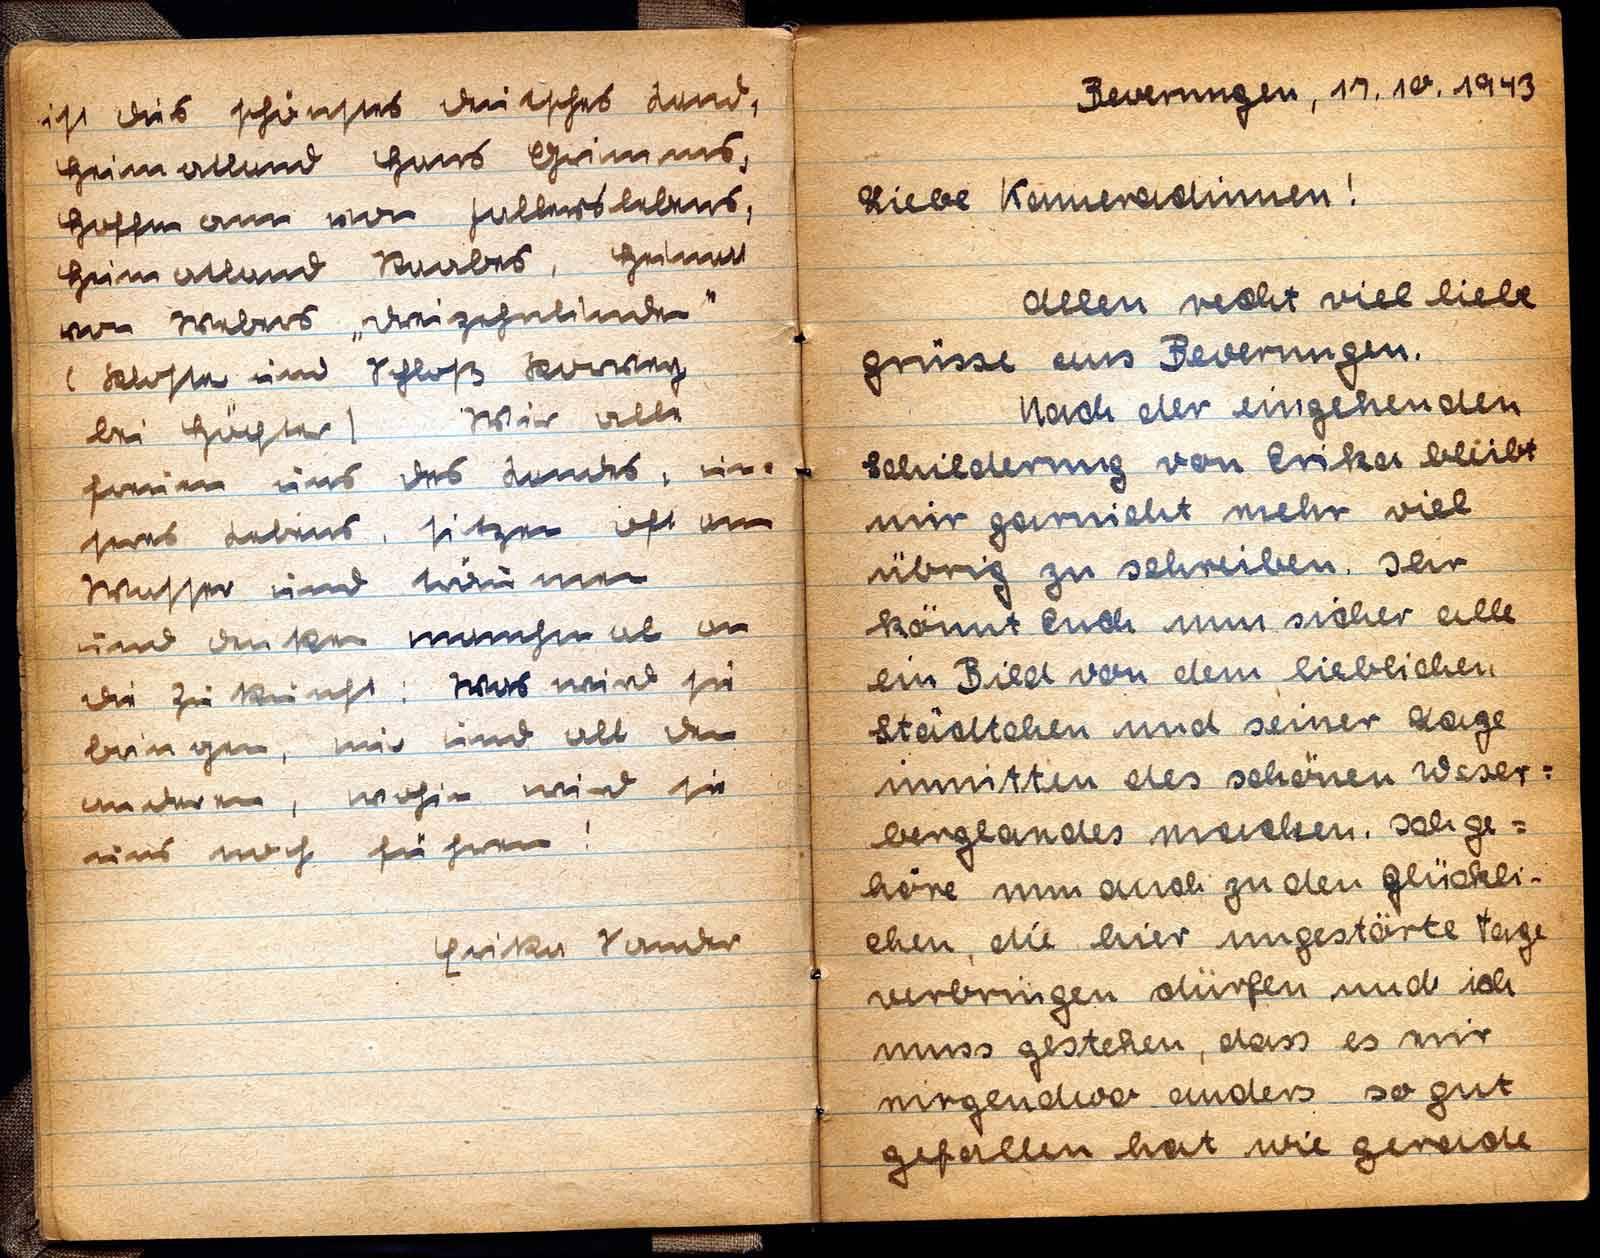 ist dies schönstes deutsches Land,
Heimatland Hans Grimms,
Hoffmann von Fallerslebens,
Heimatland Raabes, Heimat
von Webers „Dreizehnlinden"
(Kloster und Schloß Korvey
bei Höxter) Wir alle
freuen uns des Landes, un-
seres Lebens, sitzen oft am
Wasser und träumen
und denken manchmal an
die Zukunft: Was wird sie
bringen, mir und all den
anderen, wohin wird sie
uns noch führen!
Erika Sander
Beverungen, 17. 10. 1943
Liebe Kameradinnen!
Allen recht viel liebe
Grüsse aus Beverungen.
Nach der eingehenden
Schilderung von Erika bleibt
mir garnicht mehr viel
übrig zu schreiben. Ihr
könnt Euch nun sicher alle
ein Bild von dem lieblichen
Städtchen und seiner Lage
inmitten des schönen Weser=
berglandes machen. Ich ge=
höre nun auch zu den Glückli-
chen, die hier ungestörte Tage
verbringen dürfen und ich
muss gestehen, dass es mir
nirgendwo anders so gut
gefallen hat wie gerade